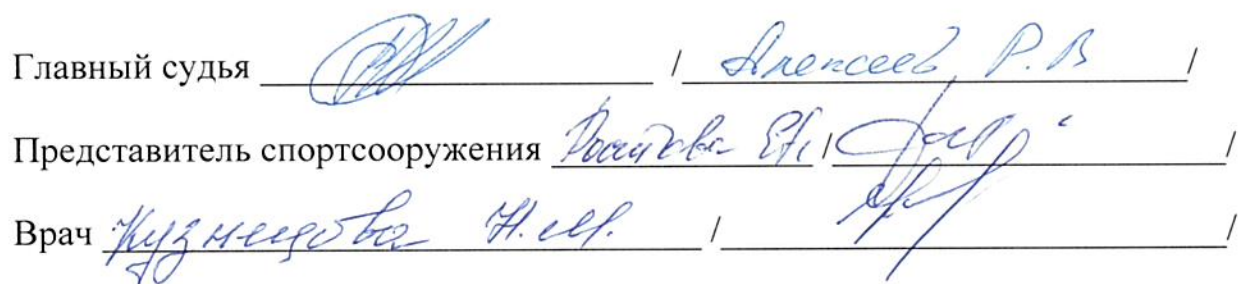 Главный судья / Алексеев Р.В /
Представитель спортсооружения / /
Врач Кузнецова Н.М. / /